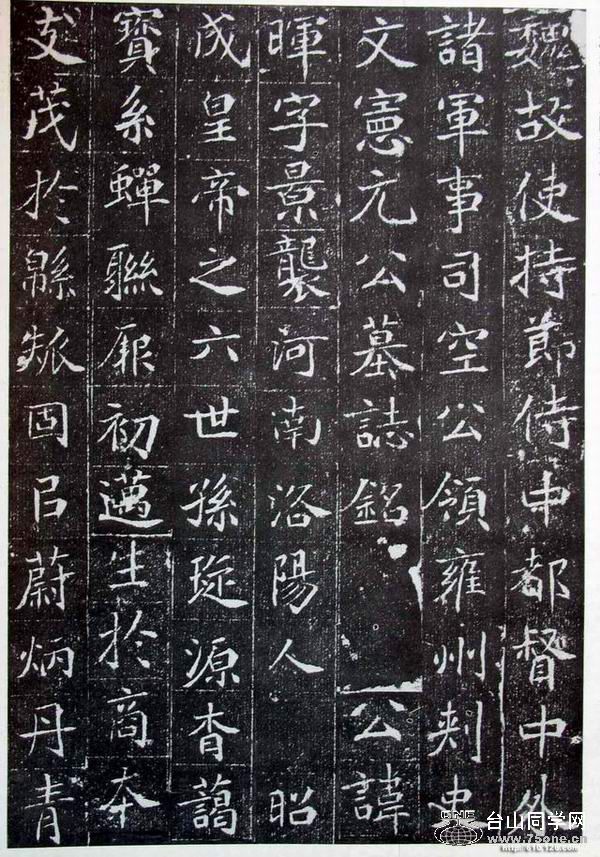 魏故使持節侍中都督中外
諸軍事司空公領雍州刾史
文憲元公墓誌銘 公諱
暉字景襲河南洛陽人 昭
成皇帝之六世孫琁源杳藹
寶系蟬聯厥初邁生於商本
支茂於緜瓞固已蔚炳丹青
台山同学网
www.75one.cn